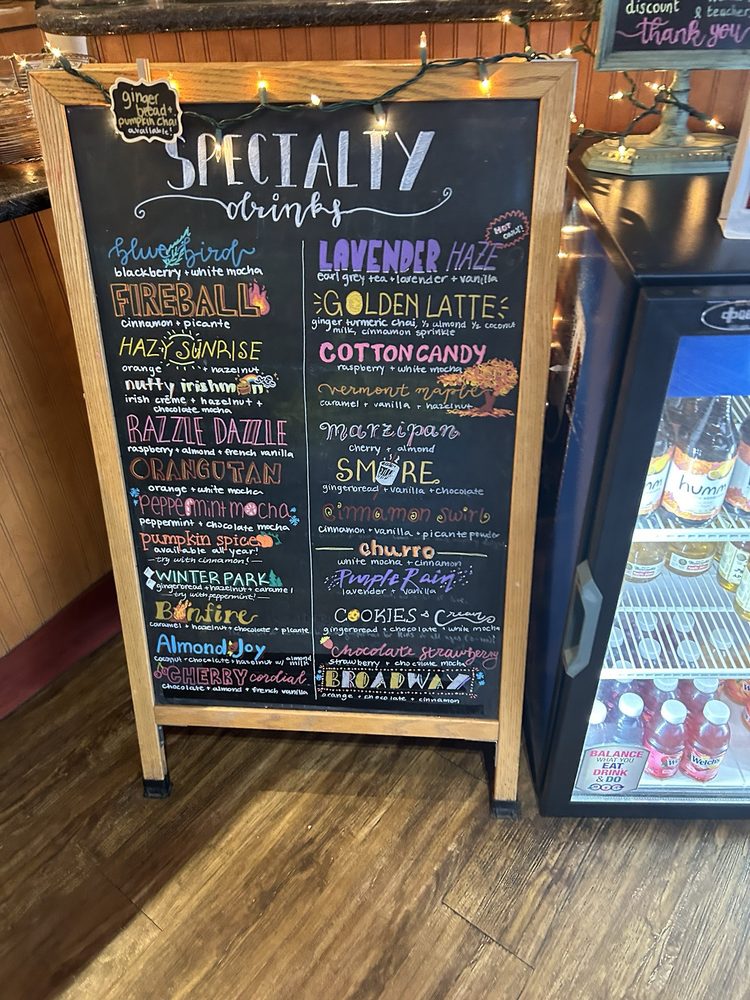 discount
& teacher
thank you
ginger
bread +
pumpkin chai
available!
SPECIALTY
drinks
blue bird
blackberry + white mocha
FIREBALL
cinnamon + picante
HAZY SUNRISE
orange + hazelnut
nutty irishman
irish crème + hazelnut +
chocolate mocha
RAZZLE DAZZLE
raspberry + almond + french vanilla
ORANGUTAN
orange + white mocha
Peppermint mocha
peppermint + chocolate mocha
pumpkin spice
available all year!
— try with cinnamon! —
WINTER PARK
gingerbread + hazelnut + caramel
— try with peppermint! —
Bonfire
caramel + hazelnut + chocolate + picante
Almond Joy
coconut + chocolate + hazelnut w/ almond milk
CHERRY cordial
chocolate + almond + french vanilla
HOT ONLY!
LAVENDER HAZE
earl grey tea + lavender + vanilla
GOLDEN LATTE
ginger turmeric chai, ½ almond ½ coconut
milk, cinnamon sprinkle
COTTON CANDY
raspberry + white mocha
vermont maple
caramel + vanilla + hazelnut
marzipan
cherry + almond
SMORE
gingerbread + vanilla + chocolate
cinnamon swirl
cinnamon + vanilla + picante powder
churro
white mocha + cinnamon
Purple Rain
lavender + vanilla
COOKIES & Cream
gingerbread + chocolate + white mocha
chocolate strawberry
strawberry + chocolate mocha
BROADWAY
orange + chocolate + cinnamon
humm
BALANCE
WHAT YOU
EAT
DRINK
& DO
Welch's